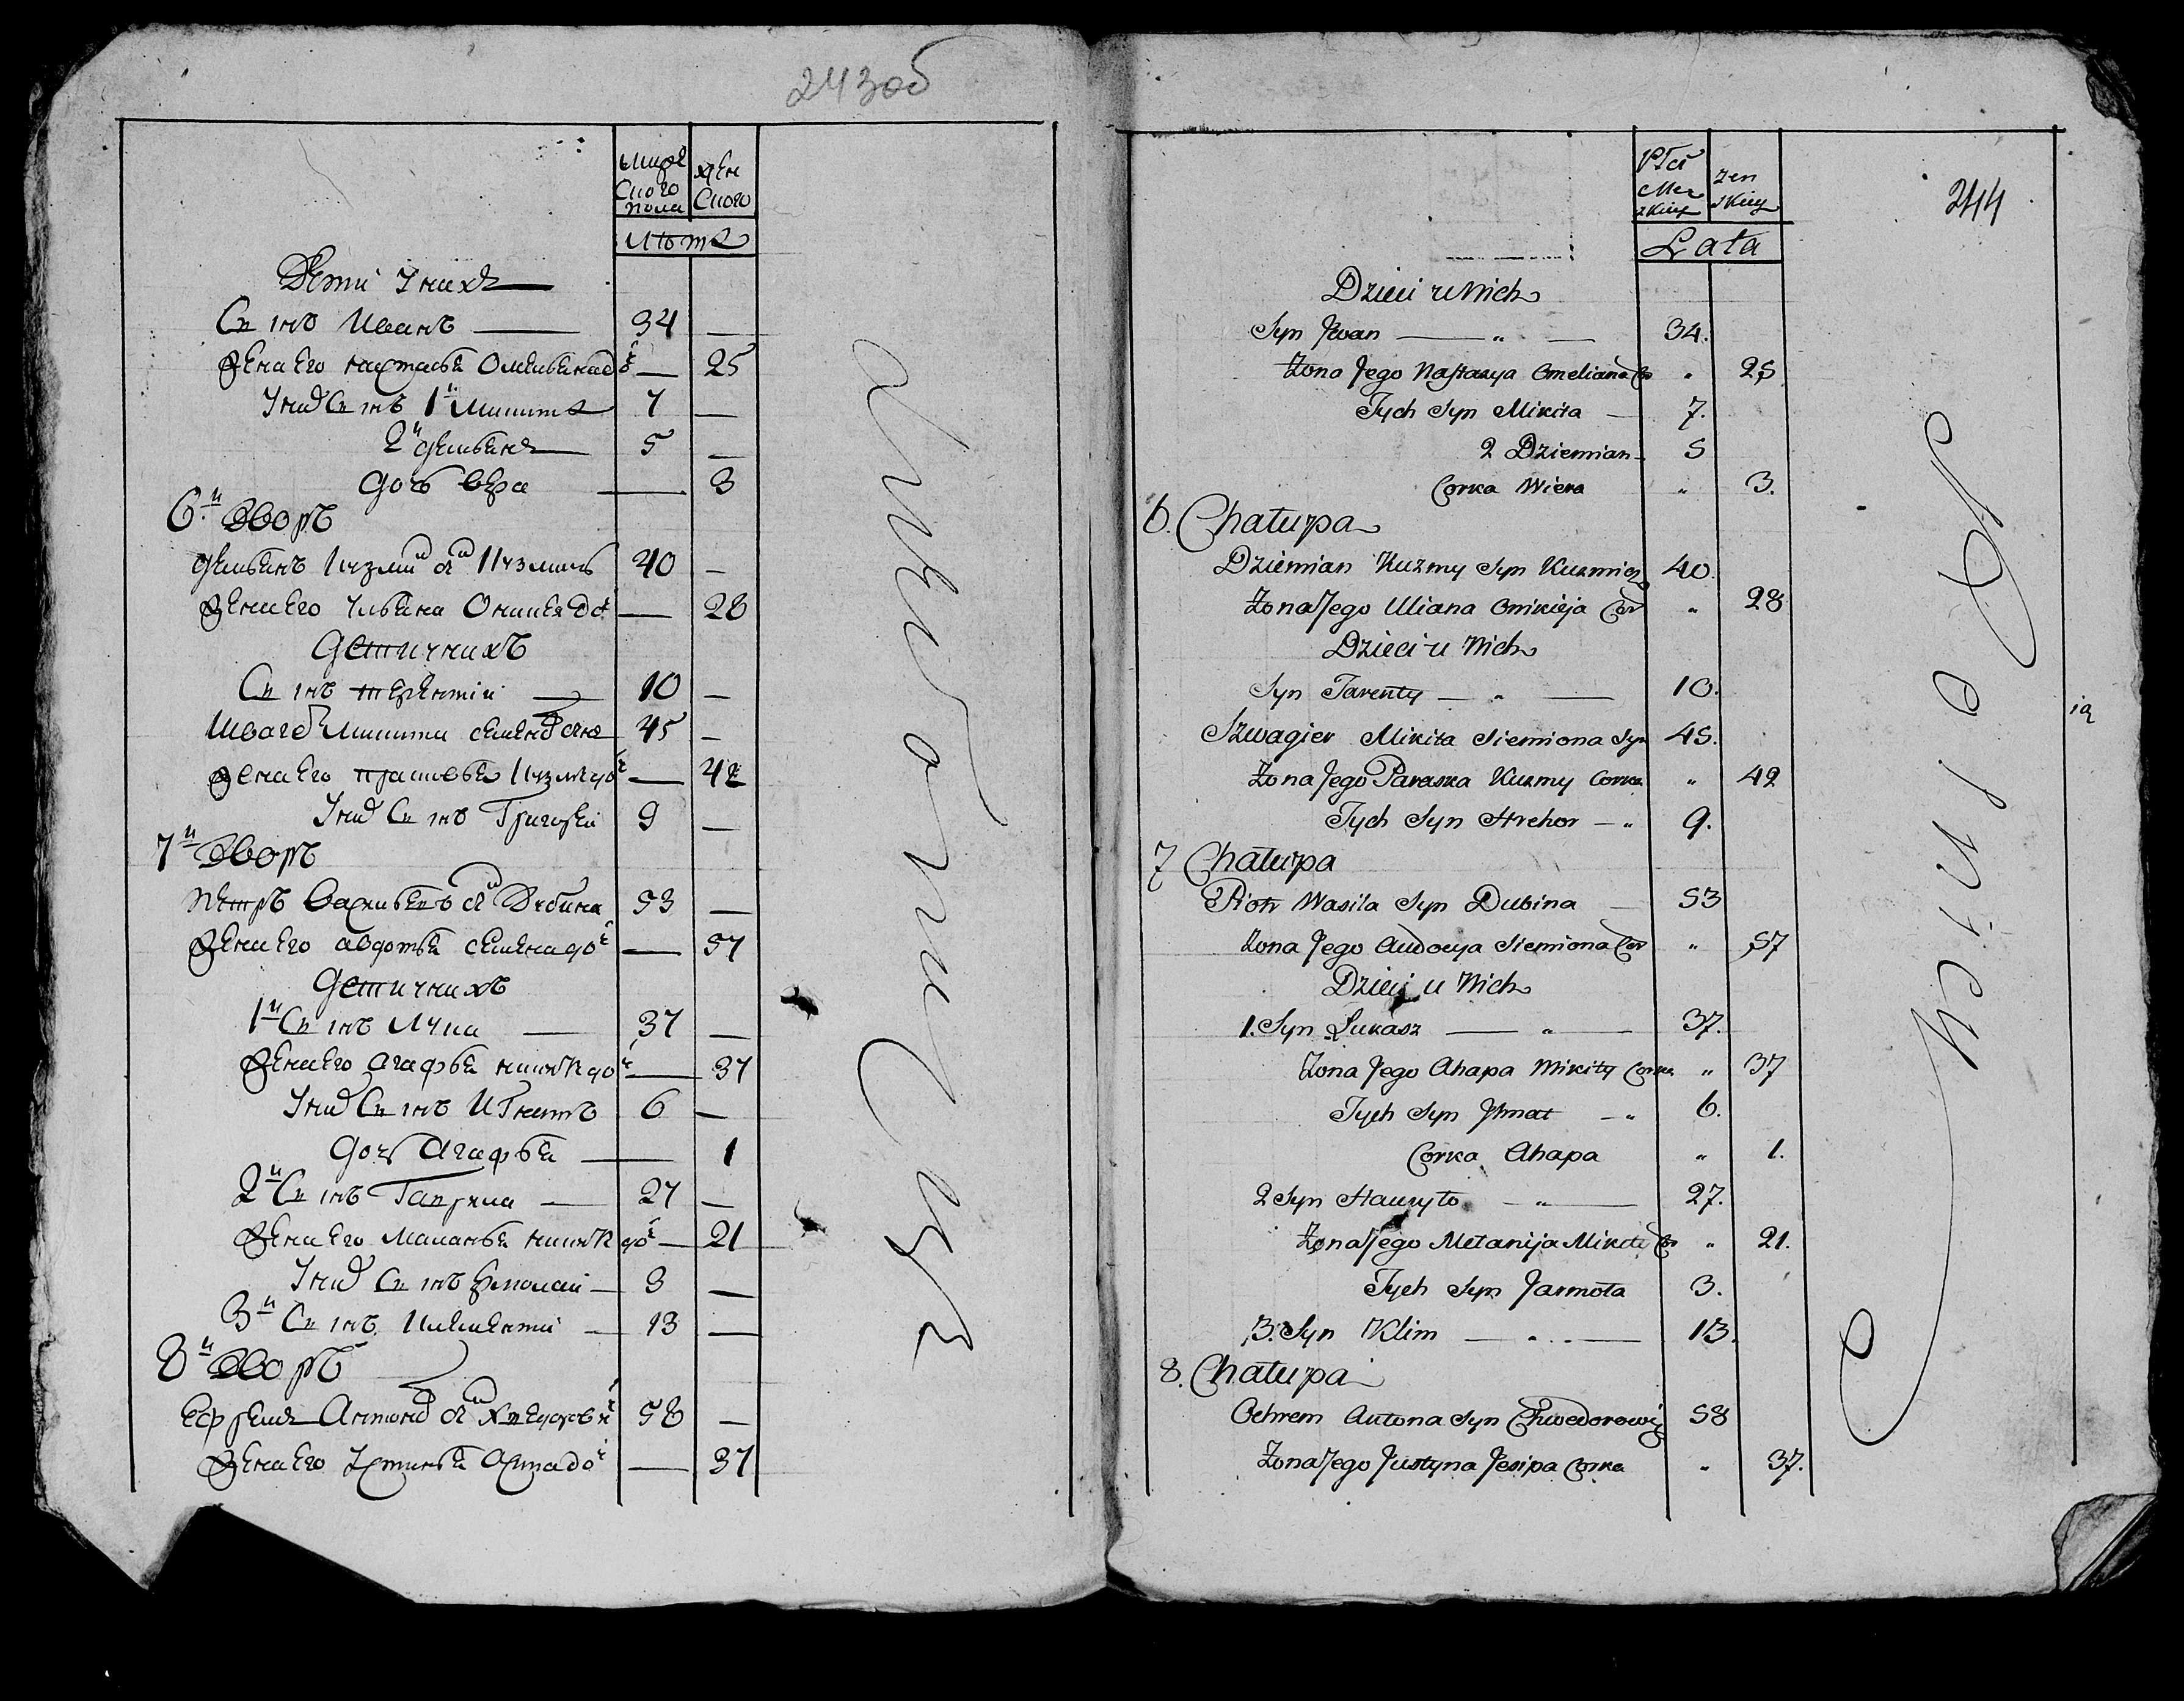 243 об
мужескаго пола
женскаго
лѣта
Дети у них
Сынъ Иванъ — 34 —
жена его настасья Омельяна до^ч — 25
у них Сынъ 1^й Микита 7 —
2^й демьянъ 5 —
дочь вера — 3
6^й Дворъ
демьянъ Кузмы с^нъ Кузмичь 40 —
жена его ульяна Оникея до^ч — 28
дети у нихъ
Сынъ терентiй — 10 —
швагеръ Микита семена сынъ 45 —
жена его прасковья Кузмы до^ч — 42
у них Сынъ Григорей 9 —
7^й Дворъ
петръ Василья с^нъ Дубина 53 —
жена его авдотья семена до^ч — 57
дети у нихъ
1^й Сынъ Лука — 37 —
жена его агафья никиты до^ч — 37
у них Сынъ Игнатъ 6 —
дочь агафья — 1
2^й Сынъ Гаврила — 27 —
жена его маланья никиты до^ч — 21
у них Сынъ ермолай — 3 —
3^й Сынъ Климентiй — 13 —
8^й Дворъ
ефремъ Антона с^нъ Хведорови^ч 58 —
жена его устинья осипа до^ч — 37
244
Płci Męzkiey
zenskiey
Lata
Dzieci u Nich
Syn Jwan — „ — 34.
Zona Jego Nastazya Omeliana Cor „ 25
Tych Syn Mikita — 7.
2 Dziemian — 5
Corka Wiera „ 3.
6. Chałupa
Dziemian Kuzmy Syn Kuzmicz 40.
Zona Jego Uliana Onikieja Cor „ 28
Dzieci u Nich
Syn Tarenty — „ — 10.
Szwagier Mikita Siemiona Syn 45.
Zona Jego Paraska Kuzmy Corka „ 42
Tych Syn Hrehor — „ 9.
7 Chałupa
Piotr Wasila Syn Dubina — 53
Zona Jego Audocya Siemiona Cor „ 57
Dzieci u Nich
1. Syn Łukasz — „ — 37.
Zona Jego Ahapa Mikity Corka „ 37
Tych Syn Jhnat — „ 6.
Corka Ahapa „ 1.
2 Syn Hauryło — „ — 27.
Zona Jego Mełanija Mikity Cor „ 21.
Tych Syn Jarmoła 3.
3. Syn Klim — „ — 13.
8. Chałupa
Ochrem Antona Syn Chwedorowicz 58
Zona Jego Justyna Jesipa Corka „ 37.